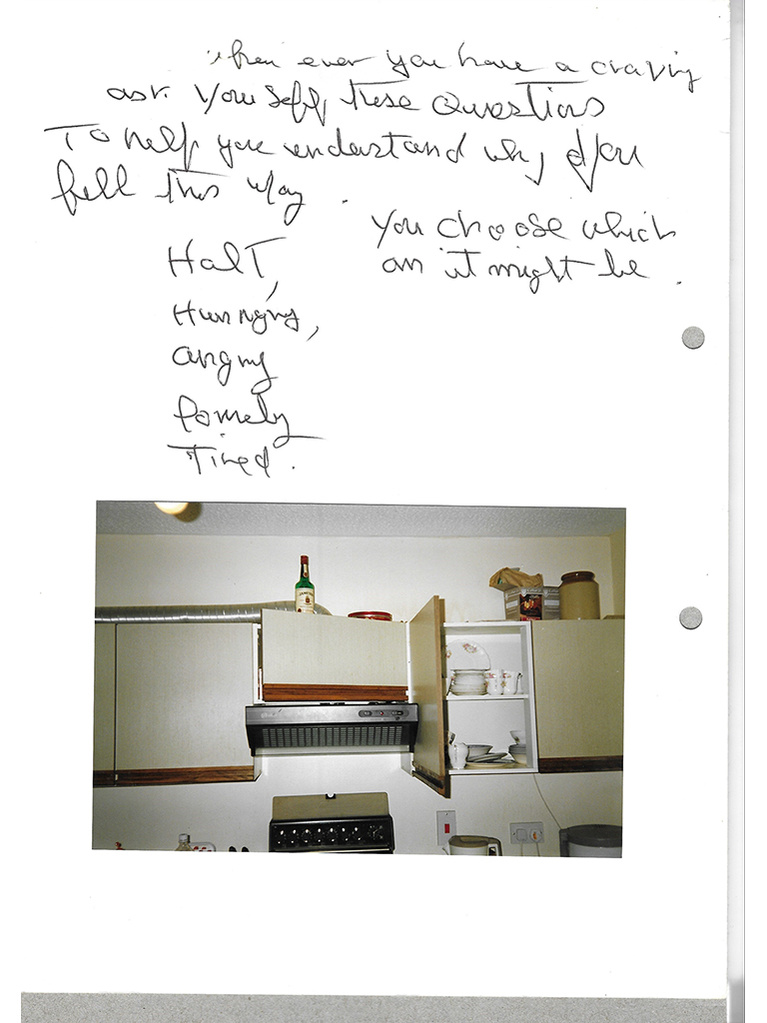 when ever you have a craving
ask youself these Questions
To help you understand why you
fell this way.
You choose which
on it might be.
Halt,
Hungry,
angry
Lonely
Tired.